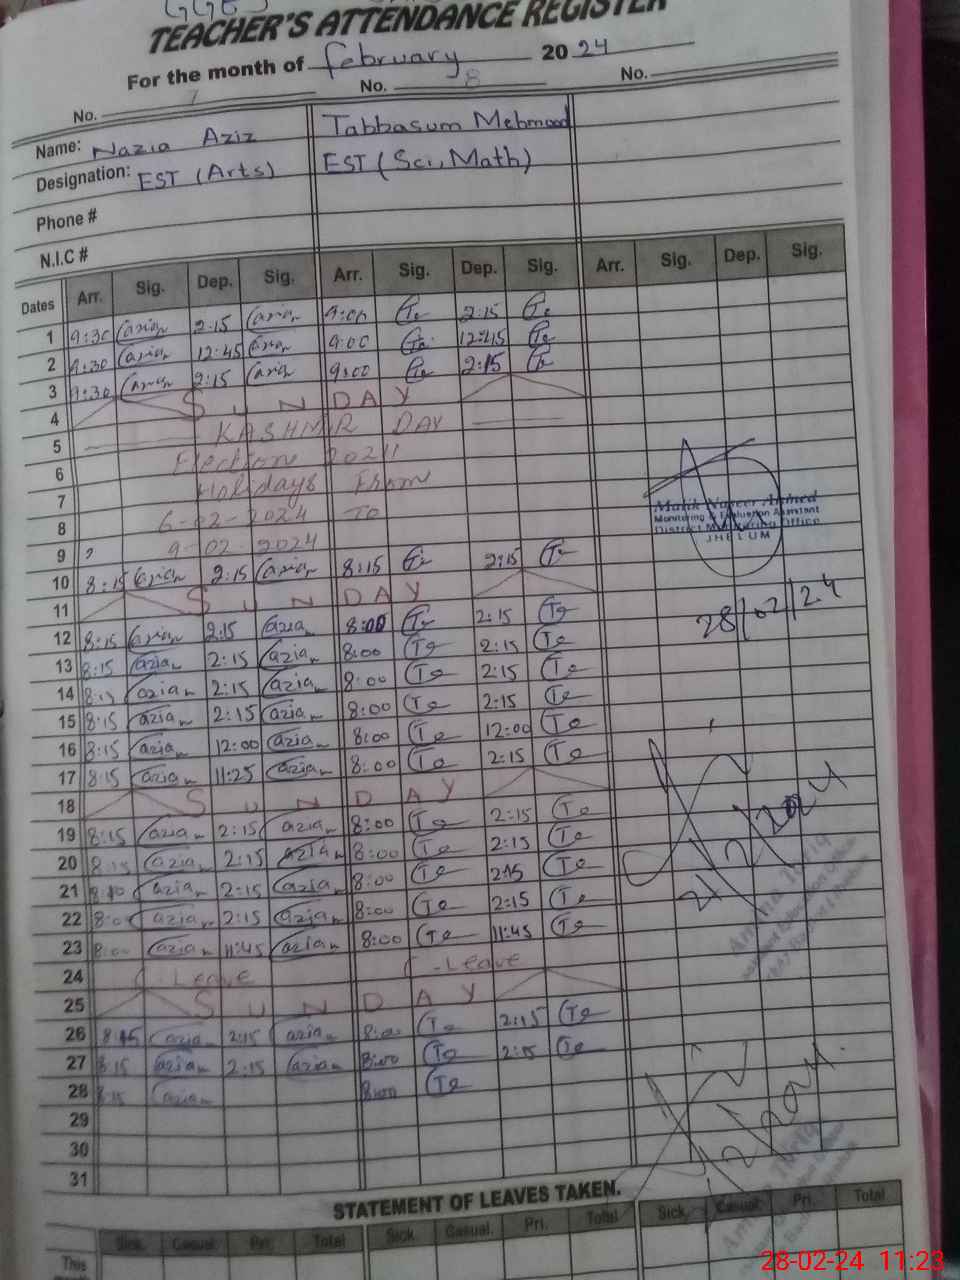 TEACHER'S ATTENDANCE REGISTER
For the month of February 2024
No. 7 No. 8 No.
Name: Nazia Aziz Tabbasum Mehmood
Designation: EST (Arts) EST (Sci, Math)
Phone #
N.I.C #
Dates Arr. Sig. Dep. Sig. Arr. Sig. Dep. Sig. Arr. Sig. Dep. Sig.
1 9:30 2:15 9:00 2:15
2 9:30 12:45 9:00 12:45
3 9:30 2:15 9:00 2:15
4 SUNDAY
5 KASHMIR DAY
6 Election 2024
7 Holidays From
8 6-02-2024 TO
9 9-02-2024
10 8:15 2:15 8:15 2:15
11 SUNDAY
12 8:15 2:15 8:00 Te 2:15 Te
13 8:15 azia 2:15 azia 8:00 Te 2:15 Te
14 azia 2:15 azia 8:00 Te 2:15 Te
15 8:15 azia 2:15 azia 8:00 Te 2:15 Te
16 8:15 azia 12:00 azia 8:00 Te 12:00 Te
17 8:15 azia 11:25 azia 8:00 Te 2:15 Te
18 SUNDAY
19 8:15 azia 2:15 azia 8:00 Te 2:15 Te
20 8:15 azia 2:15 azia 8:00 Te 2:15 Te
21 8:10 azia 2:15 azia 8:00 Te 2:15 Te
22 8:00 azia 2:15 azia 8:00 Te 2:15 Te
23 8:00 azia 11:45 azia 8:00 Te 11:45 Te
24 C-Leave C-Leave
25 SUNDAY
26 8:15 azia 2:15 azia 8:00 Te 2:15 Te
27 8:15 azia 2:15 azia 8:00 Te 2:15 Te
28 8:15 azia 8:00 Te
29
30
31
Malik Naseer Ahmed
Monitoring & Evaluation Assistant
District Monitoring Office
JHELUM
28/02/24
Amna Tariq
STATEMENT OF LEAVES TAKEN.
Sick. Casual. Pri. Total Sick. Casual. Pri. Total Sick. Casual. Pri. Total
This
28-02-24 11:23